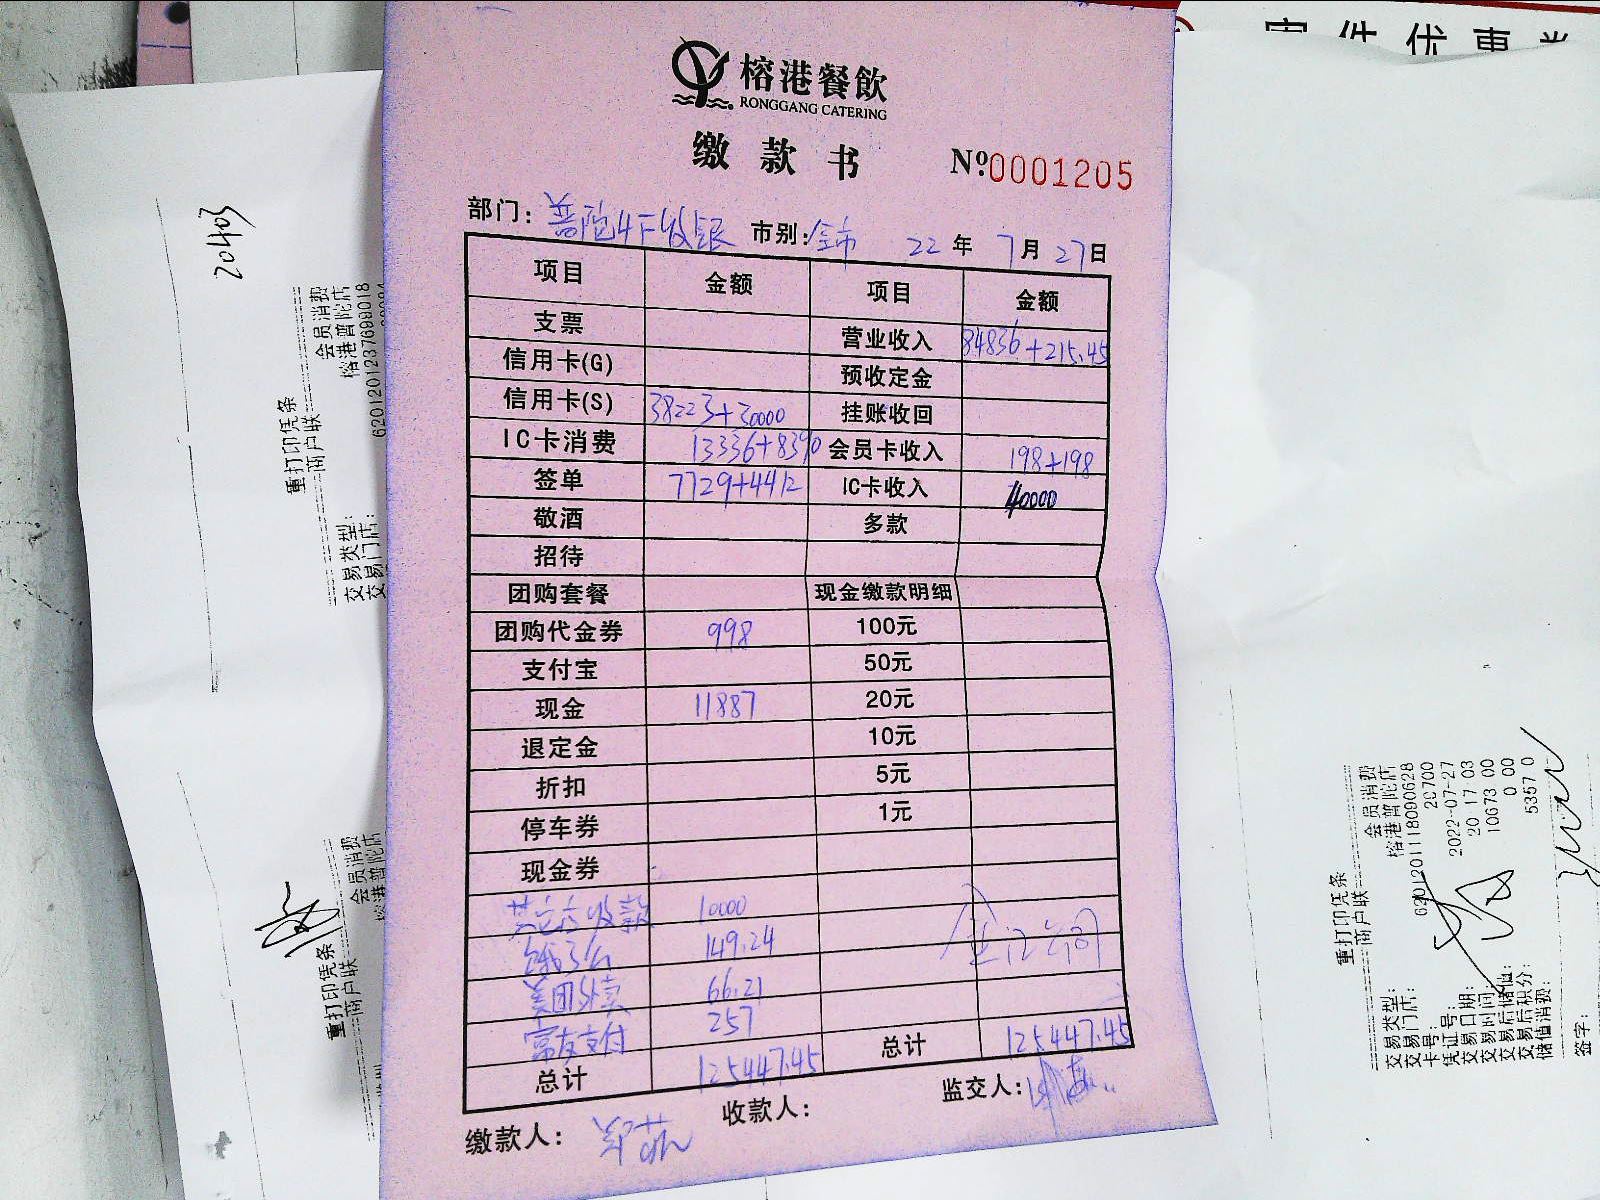 榕港餐飲
RONGGANG CATERING
缴款书
Nº:0001205
部门: 普陀4F收银 市别: 全市 22年 7月 27日
项目 金额 项目 金额
支票 营业收入 84836+215.45
信用卡(G) 预收定金
信用卡(S) 38223+30000 挂账收回
IC卡消费 13336+8390 会员卡收入 198+198
签单 7729+4412 IC卡收入 40000
敬酒 多款
招待
团购套餐 现金缴款明细
团购代金券 998 100元
支付宝 50元
现金 11887 20元
退定金 10元
折扣 5元
停车券 1元
现金券
收款 10000
饿了么 149.24
美团外卖 66.21
富友支付 257
总计 125447.45 总计 125447.45
缴款人: 收款人: 监交人:
20403
重打印凭条
商户联
交易类型: 会员消费
交易门店: 榕港普陀店
6201201237698018
重打印凭条
商户联
会员消费
榕港普陀店
重打印凭条
商户联
交易类型: 会员消费
交易门店: 榕港普陀店
卡号: 6201201118090628
凭证号: 20700
交易日期: 2022-07-27
交易时间: 20 17 03
交易后储值: 10673 00
交易后积分: 0 00
储值消费: 5357 0
签字: